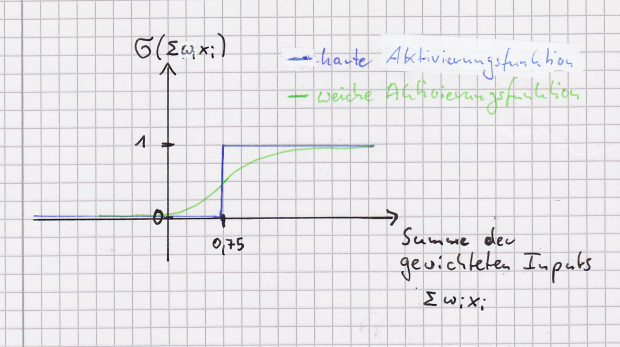 σ(Σω,xᵢ)
— harte Aktivierungsfunktion
— weiche Aktivierungsfunktion
1
0
0,75
Summe der
gewichteten Inputs
Σωᵢxᵢ